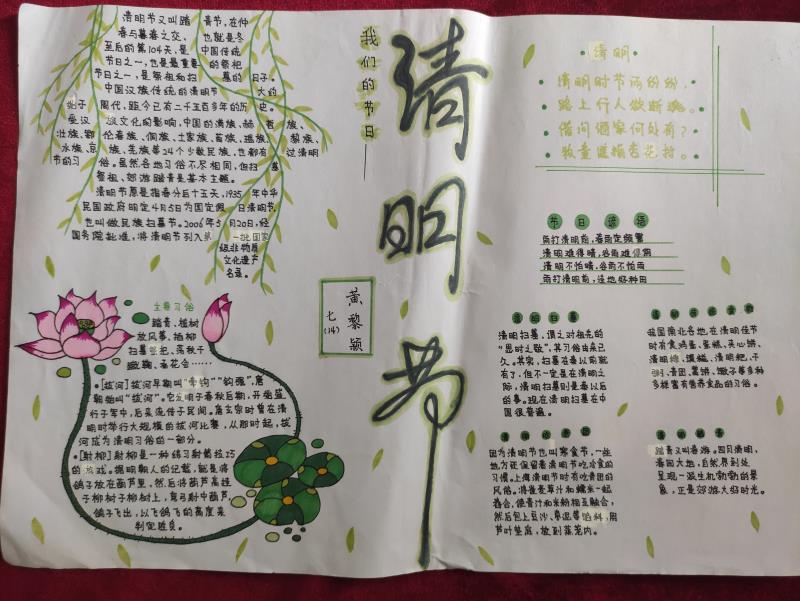 清明节又叫踏青节，在仲
春与暮春之交，也就是冬
至后的第104天，是中国传统
节日之一，也是最重要的祭祀
节日之一，是祭祖和扫墓的日子。
中国汉族传统的清明节大约
始于周代，距今已有二千五百多年的历史。
受汉族文化的影响，中国的满族、赫哲族、
壮族、鄂伦春族、侗族、土家族、苗族、瑶族、黎族、
水族、京族、羌族等24个少数民族，也都有过清明
节的习俗。虽然各地习俗不尽相同，但扫墓
祭祖、郊游踏青是基本主题。
清明节原是指春分后十五天，1935年中华
民国政府明定4月5日为国定假日清明节，
也叫做民族扫墓节。2006年5月20日，经
国务院批准，将清明节列入第一批国家
级非物质
文化遗产
名录。
主要习俗
踏青、植树
放风筝、插柳
扫墓祭祀、荡秋千
蹴鞠、斗花会……
·[拔河]拔河早期叫“牵钩”“钩强”，唐
朝始叫“拔河”。它发明于春秋后期，开始盛
行于军中，后来流传于民间。唐玄宗时曾在清
明时举行大规模的拔河比赛，从那时起，拔
河成为清明习俗的一部分。
·[射柳]射柳是一种练习射箭技巧
的游戏。据明朝人的记载，就是将
鸽子放在葫芦里，然后将葫芦高挂
于柳树上，弯弓射中葫芦，
鸽子飞出，以飞鸽飞的高度来
判定胜负。
我们的节日——
清明节
黄黎颖
七(14)
清明
清明时节雨纷纷，
路上行人欲断魂。
借问酒家何处有？
牧童遥指杏花村。
节日谚语
雨打清明前，春雨定频繁
清明难得晴，谷雨难得阴
清明不怕晴，谷雨不怕雨
雨打清明前，洼地好种田
清明扫墓
清明扫墓，谓之对祖先的
“思时之敬”，其习俗由来已
久。其实，扫墓在秦以前就
有了，但不一定是在清明之
际，清明扫墓则是秦以后
的事。现在清明扫墓在中
国很普遍。
我国南北各地在清明佳节
时有食鸡蛋、蛋糕、夹心饼、
清明粽、馍糍、清明粑、干
粥、清团、薯饼、馓子等多种
多样富有营养食品的习俗。
因为清明节也叫寒食节，一些
地方还保留着清明节吃冷食的
习惯。上海清明节时有吃青团的
风俗。将雀麦草汁和糯米一起
舂合，使青汁和米粉相互融合，
然后包上豆沙、枣泥等馅料，用
芦叶垫底，放到蒸笼内。
踏青又叫春游。四月清明，
春回大地，自然界到处
呈现一派生机勃勃的景
象，正是郊游大好时光。